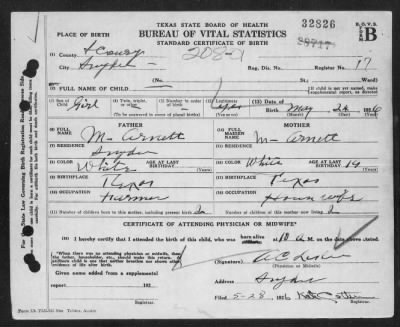 TEXAS STATE BOARD OF HEALTH
BUREAU OF VITAL STATISTICS
STANDARD CERTIFICATE OF BIRTH
32826
B.O.V.S.
FORM
B
PLACE OF BIRTH
County
City Snyder
Reg. Dis. No.
Register No. 17
No.
St.
Ward)
FULL NAME OF CHILD
If child is not yet named, make supplemental report, as directed
Sex of Child Girl
Twin, triplet, or other
Number in order of birth
(To be answered only in event of plural births)
Legitimate? yes
Date of Birth May 24 1926
FATHER
FULL NAME M— Arnett
RESIDENCE Snyder
COLOR White
AGE AT LAST BIRTHDAY
(Years)
BIRTHPLACE Texas
OCCUPATION Farmer
MOTHER
FULL NAME M— Arnett
RESIDENCE
COLOR White
AGE AT LAST BIRTHDAY 19
(Years)
BIRTHPLACE Texas
OCCUPATION Housewife
Number of children born to this mother, including present birth 2
Number of children of this mother now living 2
CERTIFICATE OF ATTENDING PHYSICIAN OR MIDWIFE
I hereby certify that I attended the birth of this child, who was born alive at 10 a M. on the date above stated.
When there was no attending physician or midwife, then the father, householder, etc., should make this return. A stillborn child is one that neither breathes nor shows other evidence of life after birth.
(Signature)
(Physician or Midwife)
Given name added from a supplemental
report 192
Address Snyder
Filed 5-28 1926
Registrar.
Registrar.